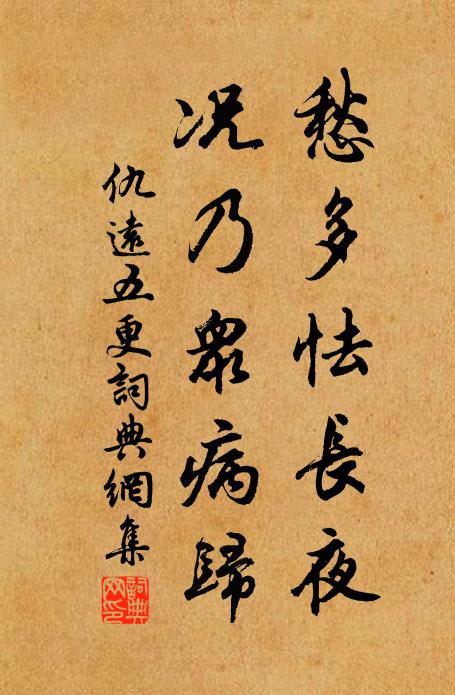 愁多怯長夜
況乃衆病歸
仇遠五更詞典網集
詞典網印